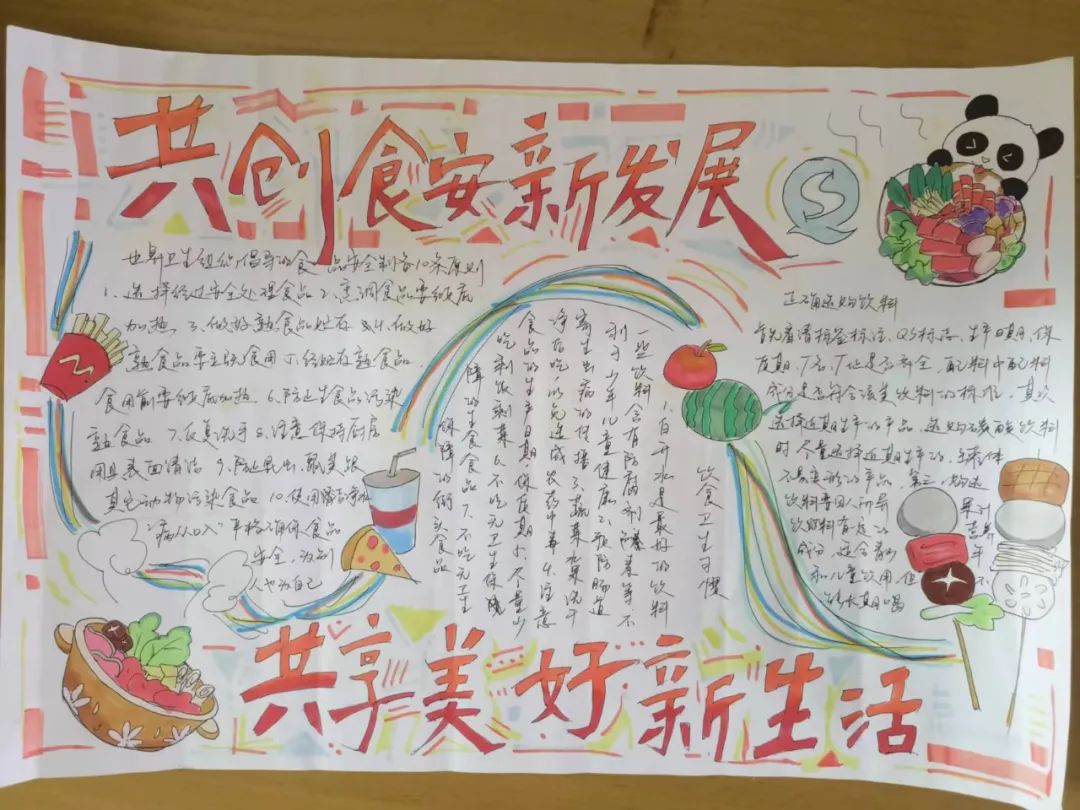 共创食安新发展
世界卫生组织倡导的食品安全制备10条原则
1、选择经过安全处理食品 2、烹调食品要彻底
加热 3、做好熟食品贮存 4、做好
熟食品要立即食用 5、经贮存熟食品
食用前要彻底加热 6、防止生食品污染
熟食品 7、反复洗手 8、注意保持厨房
用具表面清洁 9、防止昆虫、鼠类跟
其它动物污染食品 10、使用
"病从口入"严格确保食品
安全,为别
人也为自己
饮食卫生习惯
1、白开水是最好的饮料
一些饮料含有防腐剂、色素等不
利于少年儿童健康 2、预防肠道
寄生虫病的传播 3、蔬菜水果洗干
净后吃,以免造成农药中毒 4、注意
食品的生产日期、保质期 5、尽量少
吃剩饭剩菜 6、不吃无卫生保
障的生食食品 7、不吃无卫生
保障的街头食品
正确选购饮料
首先看清标签标注、QS标志、生产日期、保
质期、厂名、厂址是否齐全,配料中配料
成分是否符合该类饮料的标准,其次
选择近期生产的产品,选购碳酸饮料
时尽量选择近期生产的、罐体
不易变形的产品 第三、购选
饮料要因人而异 果汁
饮料有一定的 营养
成分,适合青少年
和儿童饮用,但不
能长期喝
QS
共享美好新生活